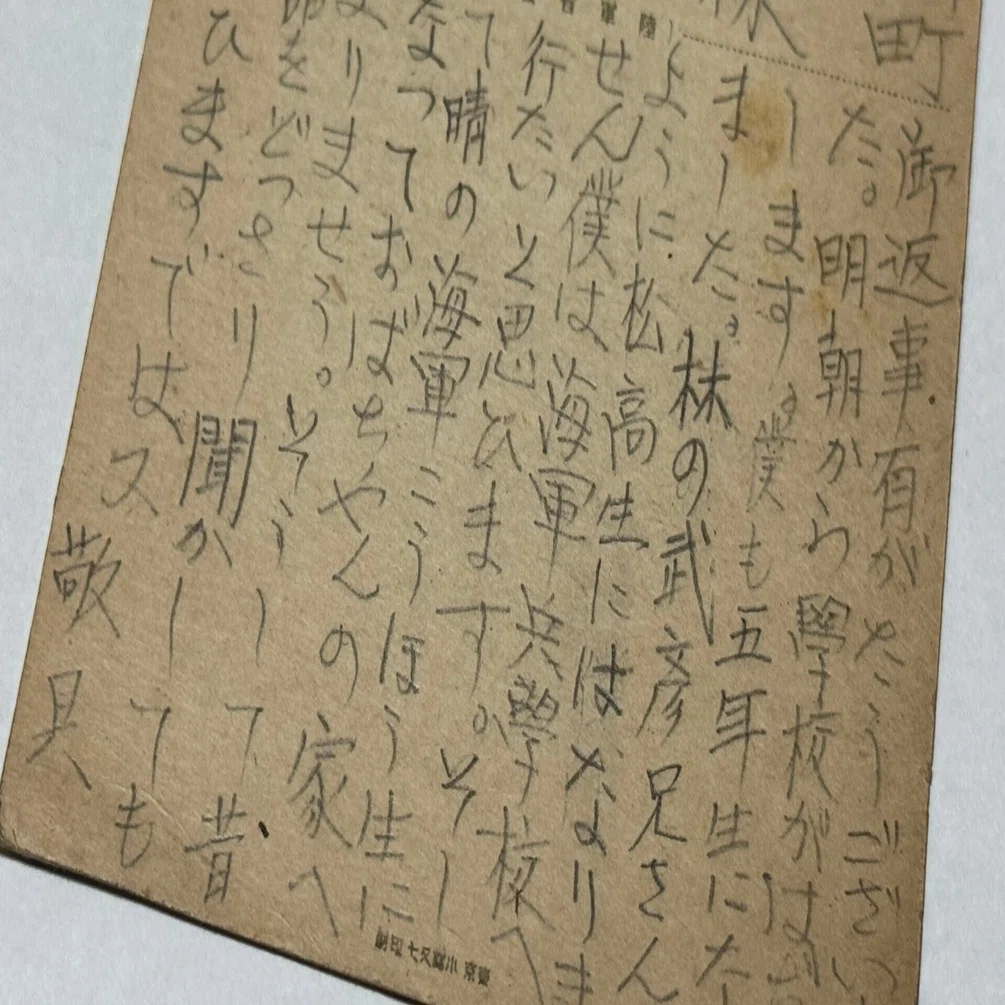 町
御返事有がたうござい
た。明朝から學校がは
します。僕も五年生にな
ました。林の武彦兄さん
ように松高生にはなりま
せん僕は海軍兵學校へ
行たいと思ひます。そし
て晴の海軍こうほう生に
なつておばちやんの家へ
よりませう。そうして昔
をどつさり聞かしても
ひますではス
敬具
陸軍省
東京 小林又七印刷